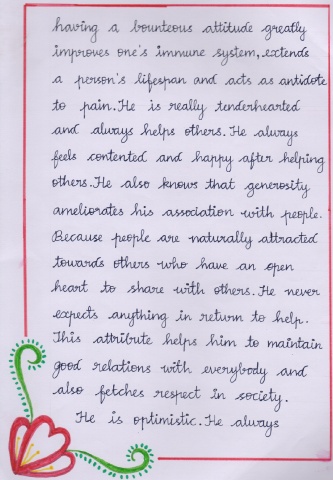 having a bounteous attitude greatly
improves one's immune system, extends
a person's lifespan and acts as antidote
to pain. He is really tenderhearted
and always helps others. He always
feels contented and happy after helping
others. He also knows that generosity
ameliorates his association with people.
Because people are naturally attracted
towards others who have an open
heart to share with others. He never
expects anything in return to help.
This attribute helps him to maintain
good relations with everybody and
also fetches respect in society.
He is optimistic. He always